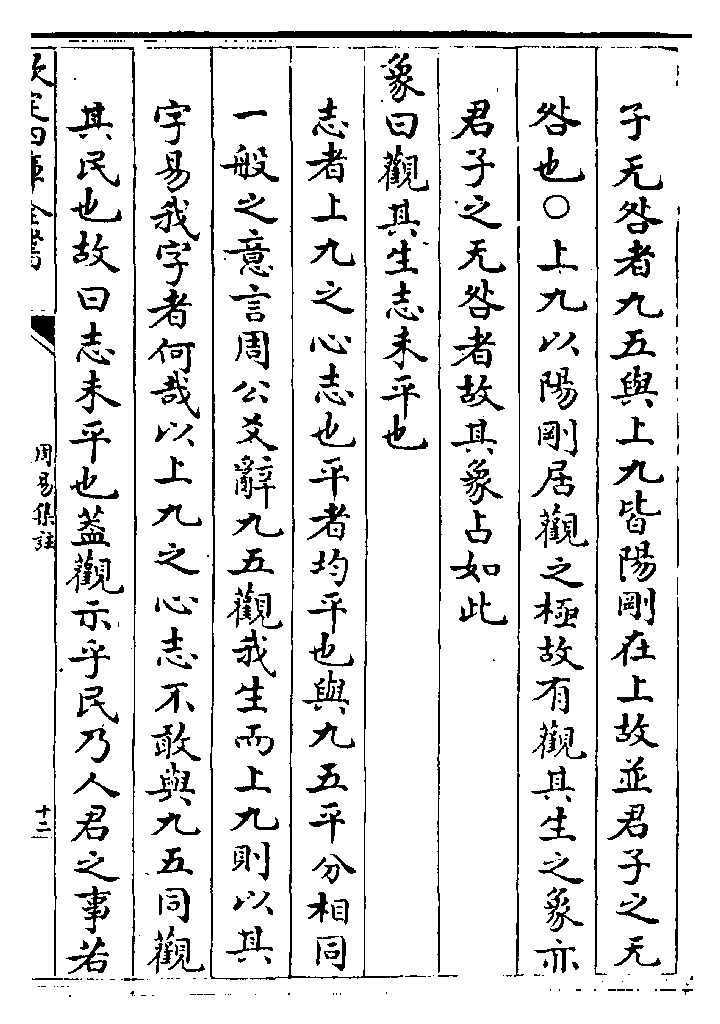 子无咎者九五與上九皆陽剛在上故並君子之无
咎也○上九以陽剛居觀之極故有觀其生之象亦
君子之无咎者故其象占如此
象曰觀其生志未平也
志者上九之心志也平者均平也與九五平分相同
一般之意言周公爻辭九五觀我生而上九則以其
字易我字者何哉以上九之心志不敢與九五同觀
其民也故曰志未平也葢觀示乎民乃人君之事若
欽定四庫全書
周易集註
十二